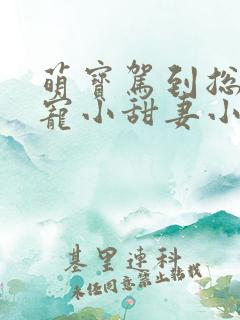 萌寶駕到總
寵小甜妻小
基里連科
未經同意禁止轉載